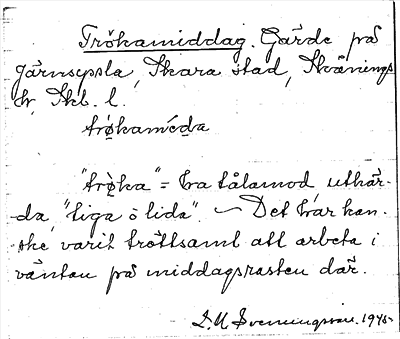 Trökamiddag. Gärde på
Järnsyssla, Skara stad, Skånings
h, Skb. l.
trø̀kamèda
"trø̀ka" = ha tålamod, uthär-
da, "tiga o lida". ~ Det har kan-
ske varit tröttsamt att arbeta i
väntan på middagsrasten där.
D.A. Svenningsson. 1945